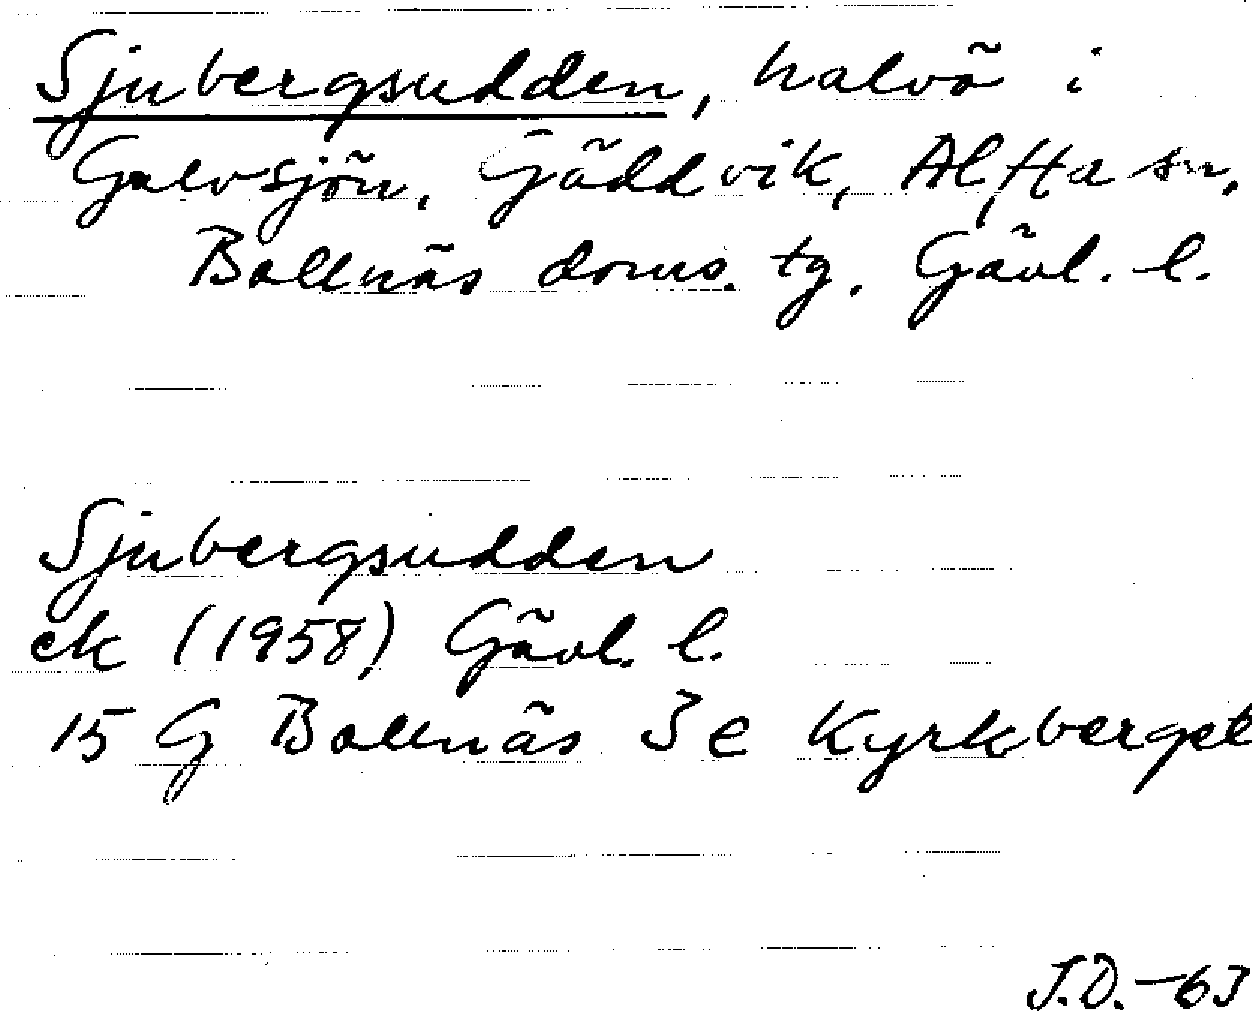 Sjubergsudden, halvö i
Galvsjön, Gäddvik, Alfta sn,
Bollnäs doms. tg. Gävl. l.
Sjubergsudden
ek (1958) Gävl. l.
15 G Bollnäs 3 e Kyrkberget
J.D. -63